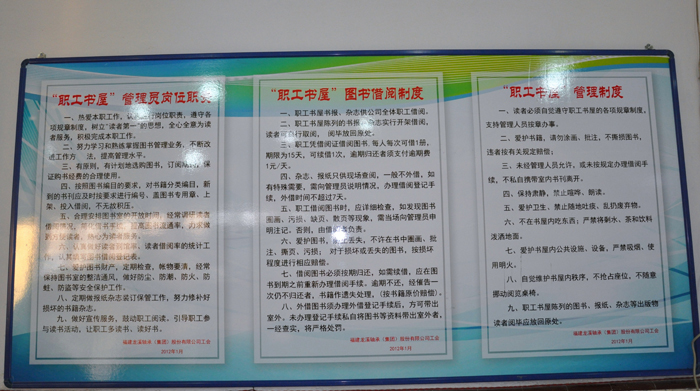 “职工书屋”管理员岗位职责
一、热爱本职工作，
岗位职责，遵守各
项规章制度，树立“读者第一”的思想，全心全意为读
者服务，积极完成本职工作。
二、努力学习和熟练掌握图书管理业务，不断改
进工作方 法，提高管理水平。
三、有原则，有计划地选购图书、订阅
保证
购书经费的合理使用。
四、按照图书编目的要求，对书籍分类编目，新
到的书刊应及时按要求进行编号、盖图书专用章、上
架、投入借阅，不无故积压。
五、合理安排图书室的开放时间，经常调研读者
借阅情况，简化借书手续，提高图书流通率，力求做
到方便读者，热心为读者服务。
六、认真做好读者
率、读者借阅率的统计工
作，认真填写图书借阅登记表。
七、爱护图书财产，定期检查，帐物要清，经常
保持图书室的整洁通风，做好防尘、防潮、防火、防
蛀、防盗等安全保护工作。
八、定期做报纸杂志装订保管工作，努力修补好
损坏的书籍杂志。
九、做好宣传服务，鼓动职工阅读，引导职工参
与读书活动，让职工多读书、读好书。
福建龙溪轴承（集团）股份有限公司工会
2012年1月
“职工书屋”图书借阅制度
一、职工书屋书报、杂志供公司全体职工借阅。
二、职工书屋陈列的书报、杂志实行开架借阅，
读者可自行取阅，阅毕放回原处。
三、职工凭借阅证借阅图书，每人每次可借1册，
期限为15天，可续借1次，逾期归还者须支付逾期费
1元/天。
四、杂志、报纸只供现场查阅，一般不外借，如
有特殊需要，需向管理员说明情况，办理借阅登记手
续，外借时间不超过7天。
五、职工借阅图书时，应详细检查，如发现图书
圈画、污损、缺页、数页等现象，需当场向管理员申
明注记。否则，由借阅者负责。
六、爱护图书，
丢失，不许在书中圈画、批
注、撕页、污损； 对于损坏或丢失的图书，按损坏
程度进行相应赔偿。
七、借阅图书必须按期归还，如需续借，应在图
书到期之前重新办理借阅手续。逾期不还，经催告一
次仍不归还者，书籍作遗失处理，（按书籍原价赔偿）。
八、外借图书须办理外借登记手续后，方可带出
室外。未办理登记手续私自将图书等资料带出室外者，
一经查实，将严格处罚。
福建龙溪轴承（集团）股份有限公司工会
2012年1月
“职工书屋” 管理制度
一、读者必须自觉遵守职工书屋的各项规章制度，
支持管理人员按章办事。
二、爱护书籍，请勿涂画、批注，不撕损图书，
违者按有关规定赔偿；
三、未经管理人员允许，或未按规定办理借阅手
续，不私自携带室内书刊离开。
四、保持肃静，禁止喧哗、朗读。
五、爱护卫生，禁止随地吐痰、乱扔废弃物。
六、不在书屋内吃东西；严禁将剩水、茶和饮料
泼洒地面。
七、爱护书屋内公共设施、设备，严禁吸烟、使
用明火。
八、自觉维护书屋内秩序，不抢占座位，不随意
挪动阅览桌椅。
九、职工书屋陈列的图书、报纸、杂志等出版物
读者阅毕应放回原处。
福建龙溪轴承（集团）股份有限公司工会
2012年1月